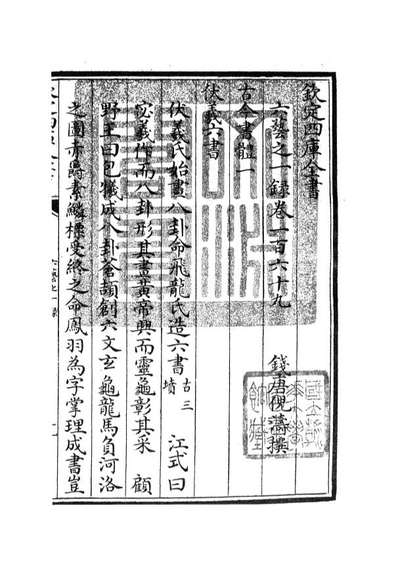 欽定四庫全書
六藝之一録卷一百六十九
錢唐倪濤撰
古今書體一
伏羲六書
伏羲氏始畫八卦命飛龍氏造六書 古三墳 江式曰
宓羲作而八卦形其畫黄帝興而靈龜彰其采 顧
野王曰包犧成八卦蒼頡創六文玄龜龍馬負河洛
之圖赤爵素鱗標受終之命鳳羽為字掌理成書豈